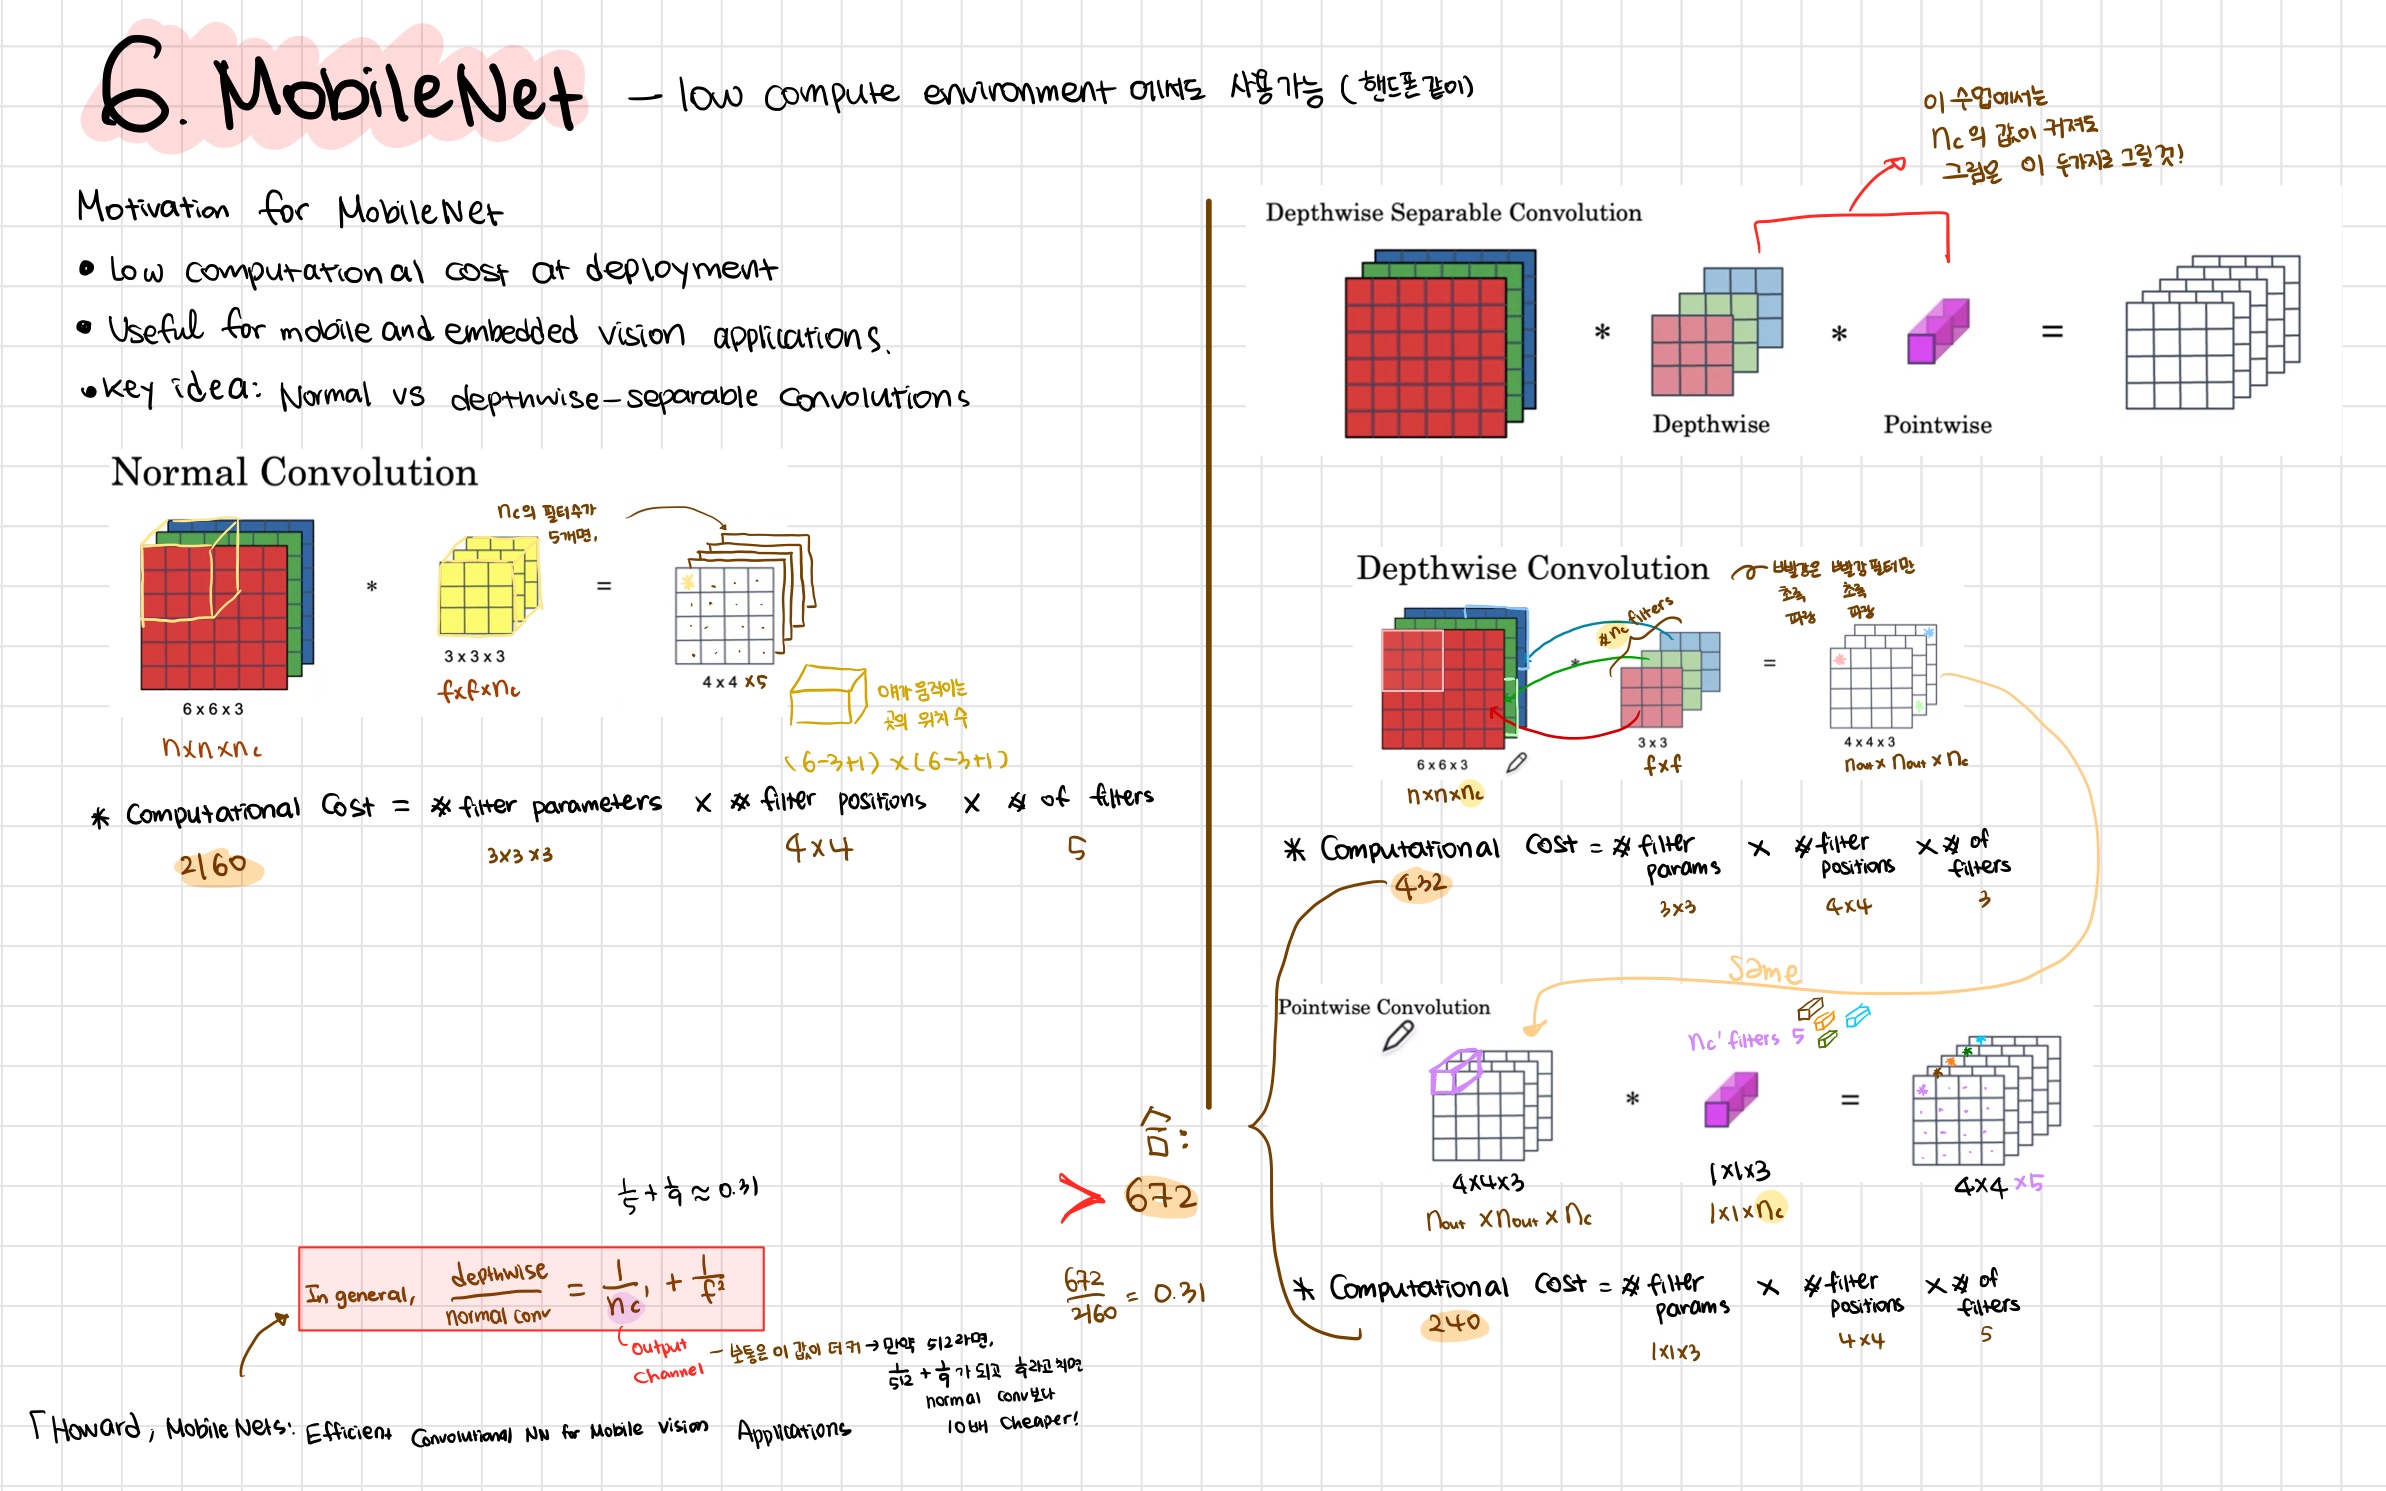 6. MobileNet — low compute environment 에서도 사용가능 (핸드폰같이)
Motivation for MobileNet
• Low computational cost at deployment
• Useful for mobile and embedded vision applications.
• Key idea: Normal vs depthwise-separable convolutions
Normal Convolution
nc의 필터수가
5개면,
*
=
3 x 3 x 3
fxfxnc
4 x 4 x5
6 x 6 x 3
nxnxnc
얘가 움직이는
곳의 위치 수
(6-3+1) x (6-3+1)
* Computational Cost = # filter parameters x # filter positions x # of filters
2160 3x3x3 4x4 5
이 수업에서는
nc의 값이 커져도
그림은 이 두가지로 그릴것!
Depthwise Separable Convolution
* * =
Depthwise Pointwise
Depthwise Convolution
빨강은 빨강필터만
초록 초록
파랑 파랑
#nc filters
* =
6 x 6 x 3
nxnxnc
3 x 3
fxf
4 x 4 x 3
nout x nout x nc
* Computational Cost = # filter params x # filter positions x # of filters
432 3x3 4x4 3
Same
Pointwise Convolution
nc' filters 5
* =
4x4x3
nout x nout x nc
1x1x3
1x1xnc
4x4 x5
* Computational Cost = # filter params x # filter positions x # of filters
240 1x1x3 4x4 5
합:
> 672
672/2160 = 0.31
1/5 + 1/9 ≈ 0.31
In general, depthwise/normal conv = 1/nc' + 1/f²
output
channel
— 보통은 이 값이 더 커 → 만약 512라면,
1/512 + 1/9가 되고 1/9라고 치면
normal conv보다
10배 cheaper!
「Howard, MobileNets: Efficient Convolutional NN for Mobile Vision Applications